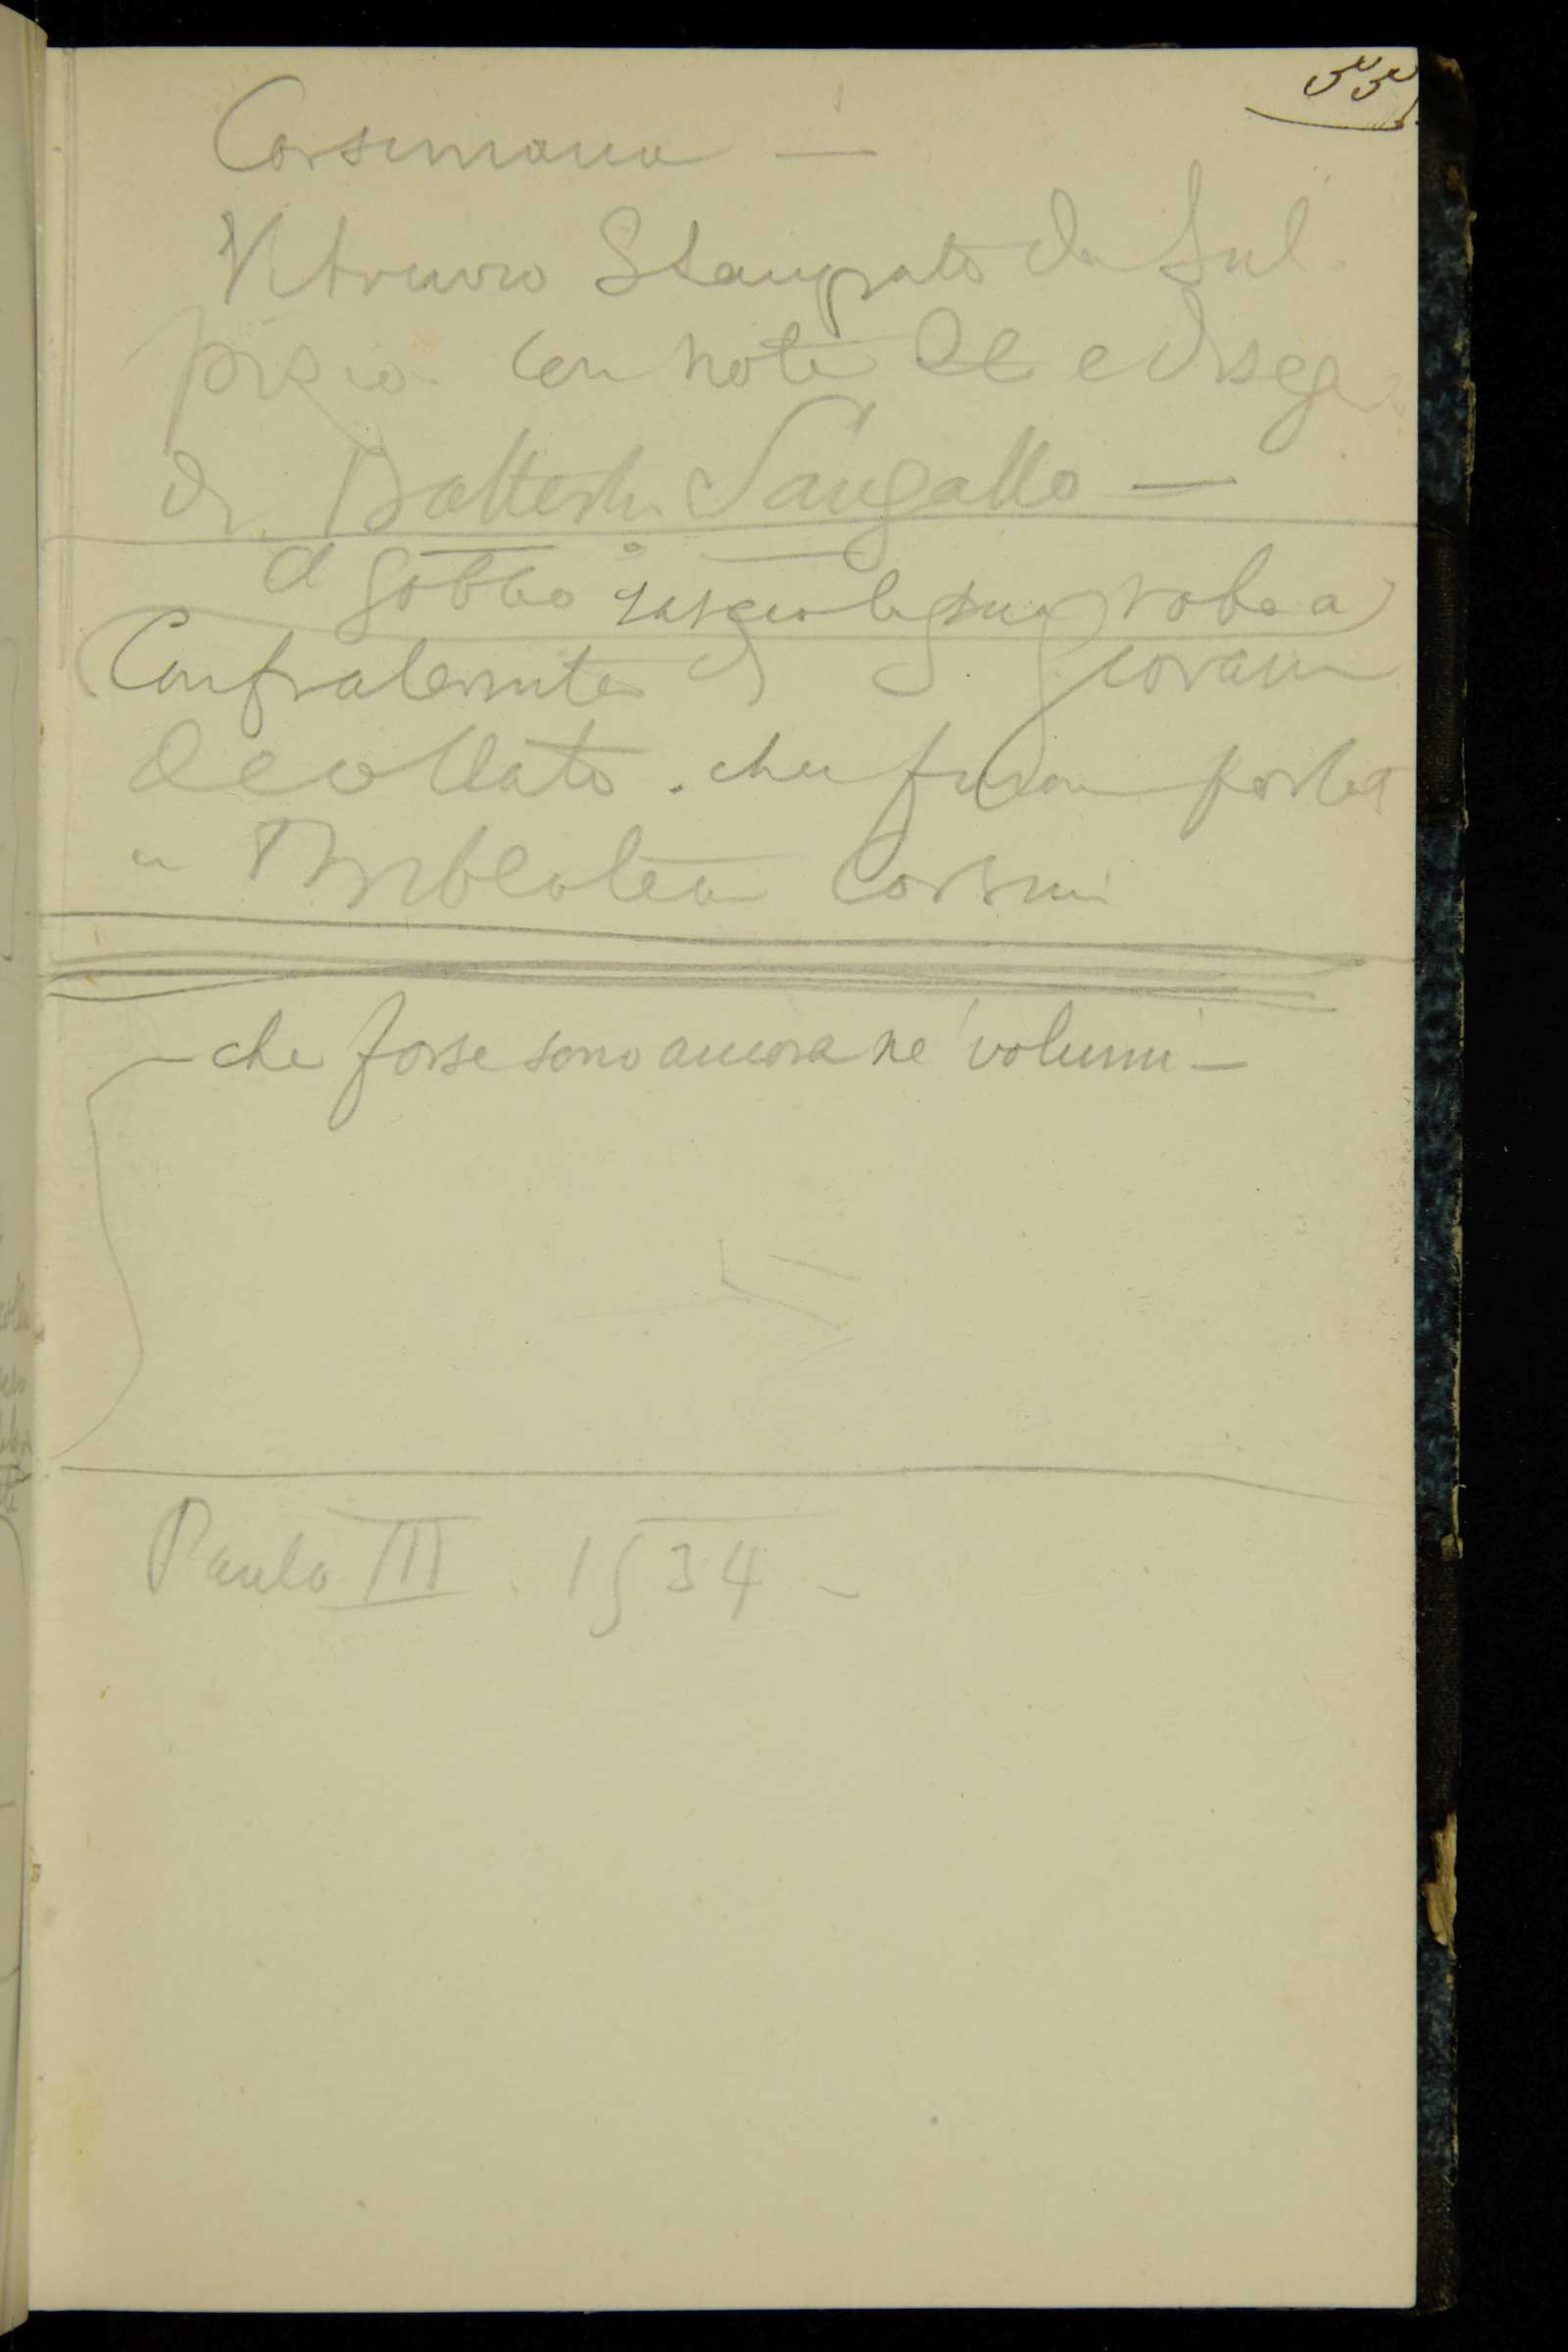 33
Corsiniana —
Vitruvio Stampato da Sul
pizio. con note e diseg
di Battista Sangallo —
il gobbo lascio le sue robe a
Confraternita di S. Giovanni
decollato. che furon portat
in Biblioteca Corsini
— che forse sono ancora ne' volumi —
Paulo III. 1534 —